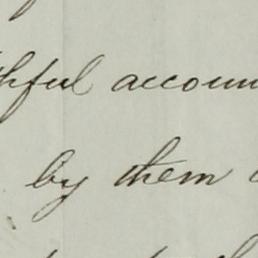 hful accoun
by them